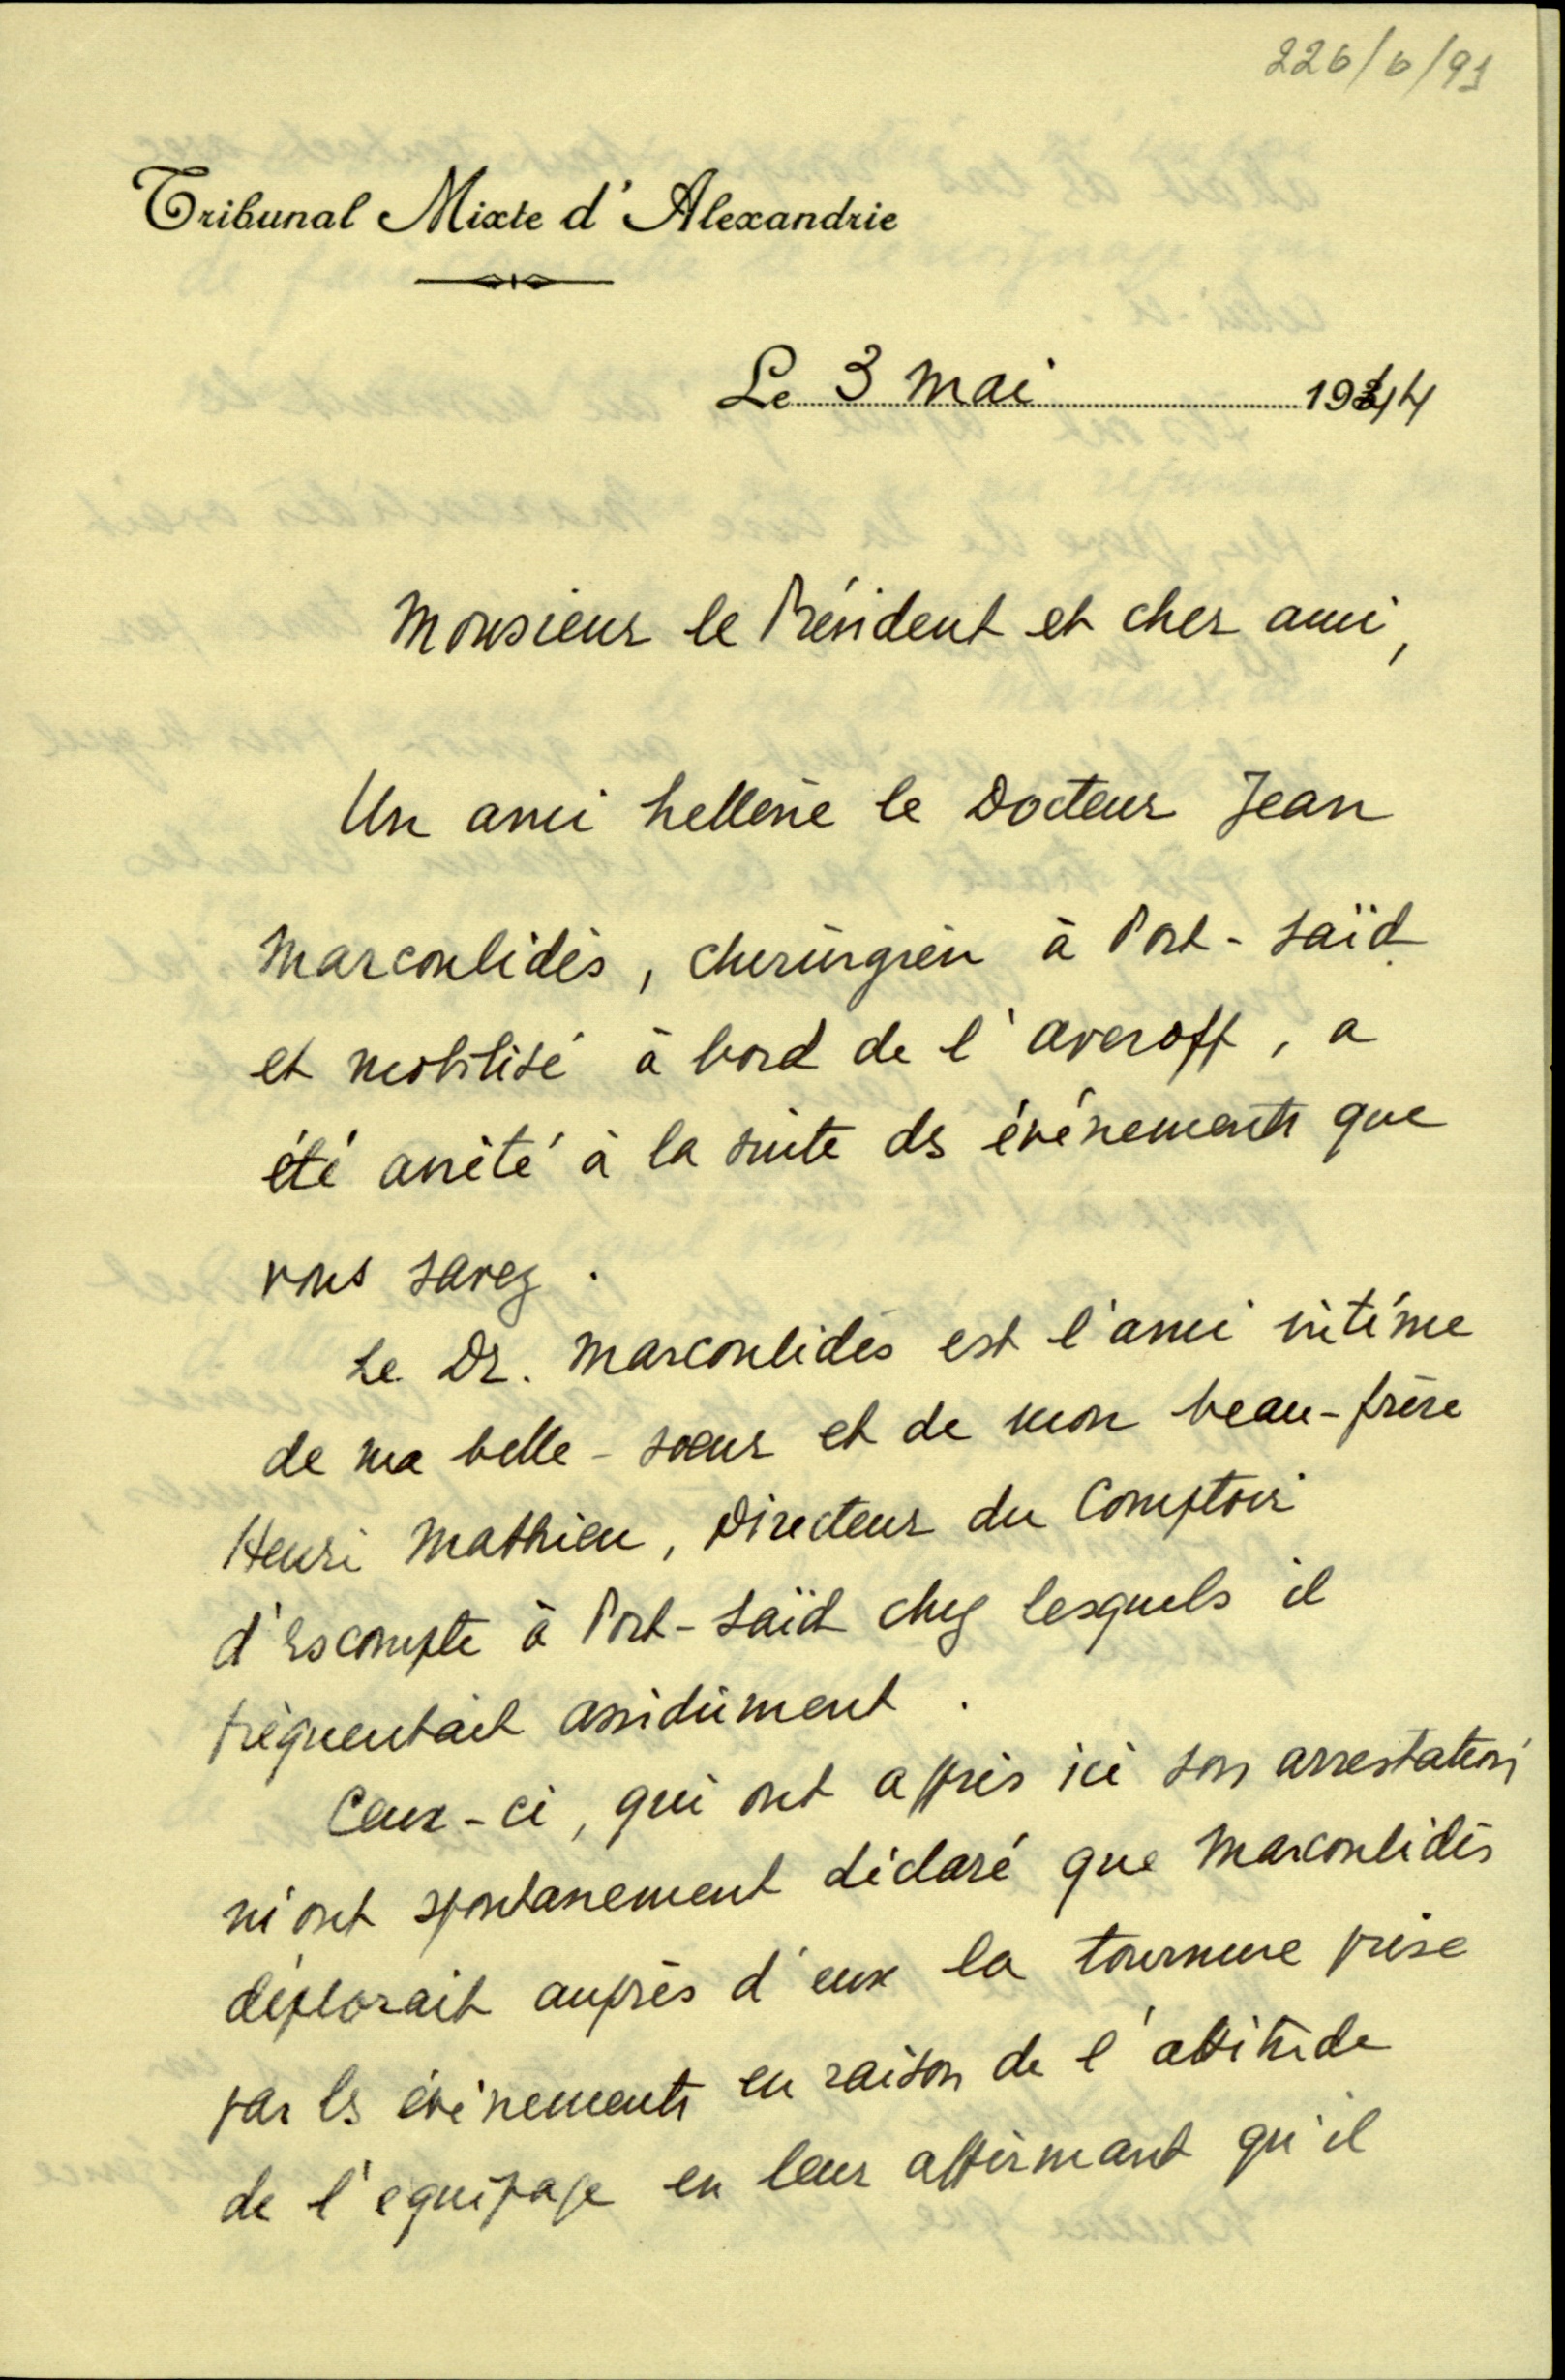 226/6/91
Tribunal Mixte d'Alexandrie
Le 3 mai 1944
Monsieur le Président et cher ami,
Un ami hellène le Docteur Jean
Marcoulidès, chirurgien à Port-Saïd
et mobilisé à bord de l'averoff, a
été arrêté à la suite ds événements que
vous savez.
Le Dr. Marcoulidès est l'ami intime
de ma belle-soeur et de mon beau-frère
Henri Mathieu, Directeur du Comptoir
d'Escompte à Port-Saïd chez lesquels il
fréquentait assidûment.
Ceux-ci, qui ont appris ici son arrestation
m'ont spontanement déclaré que Marcoulidès
déplorait auprès d'eux la tournure prise
par ls événements en raison de l'attitude
de l'équipage en leur affirmant qu'il